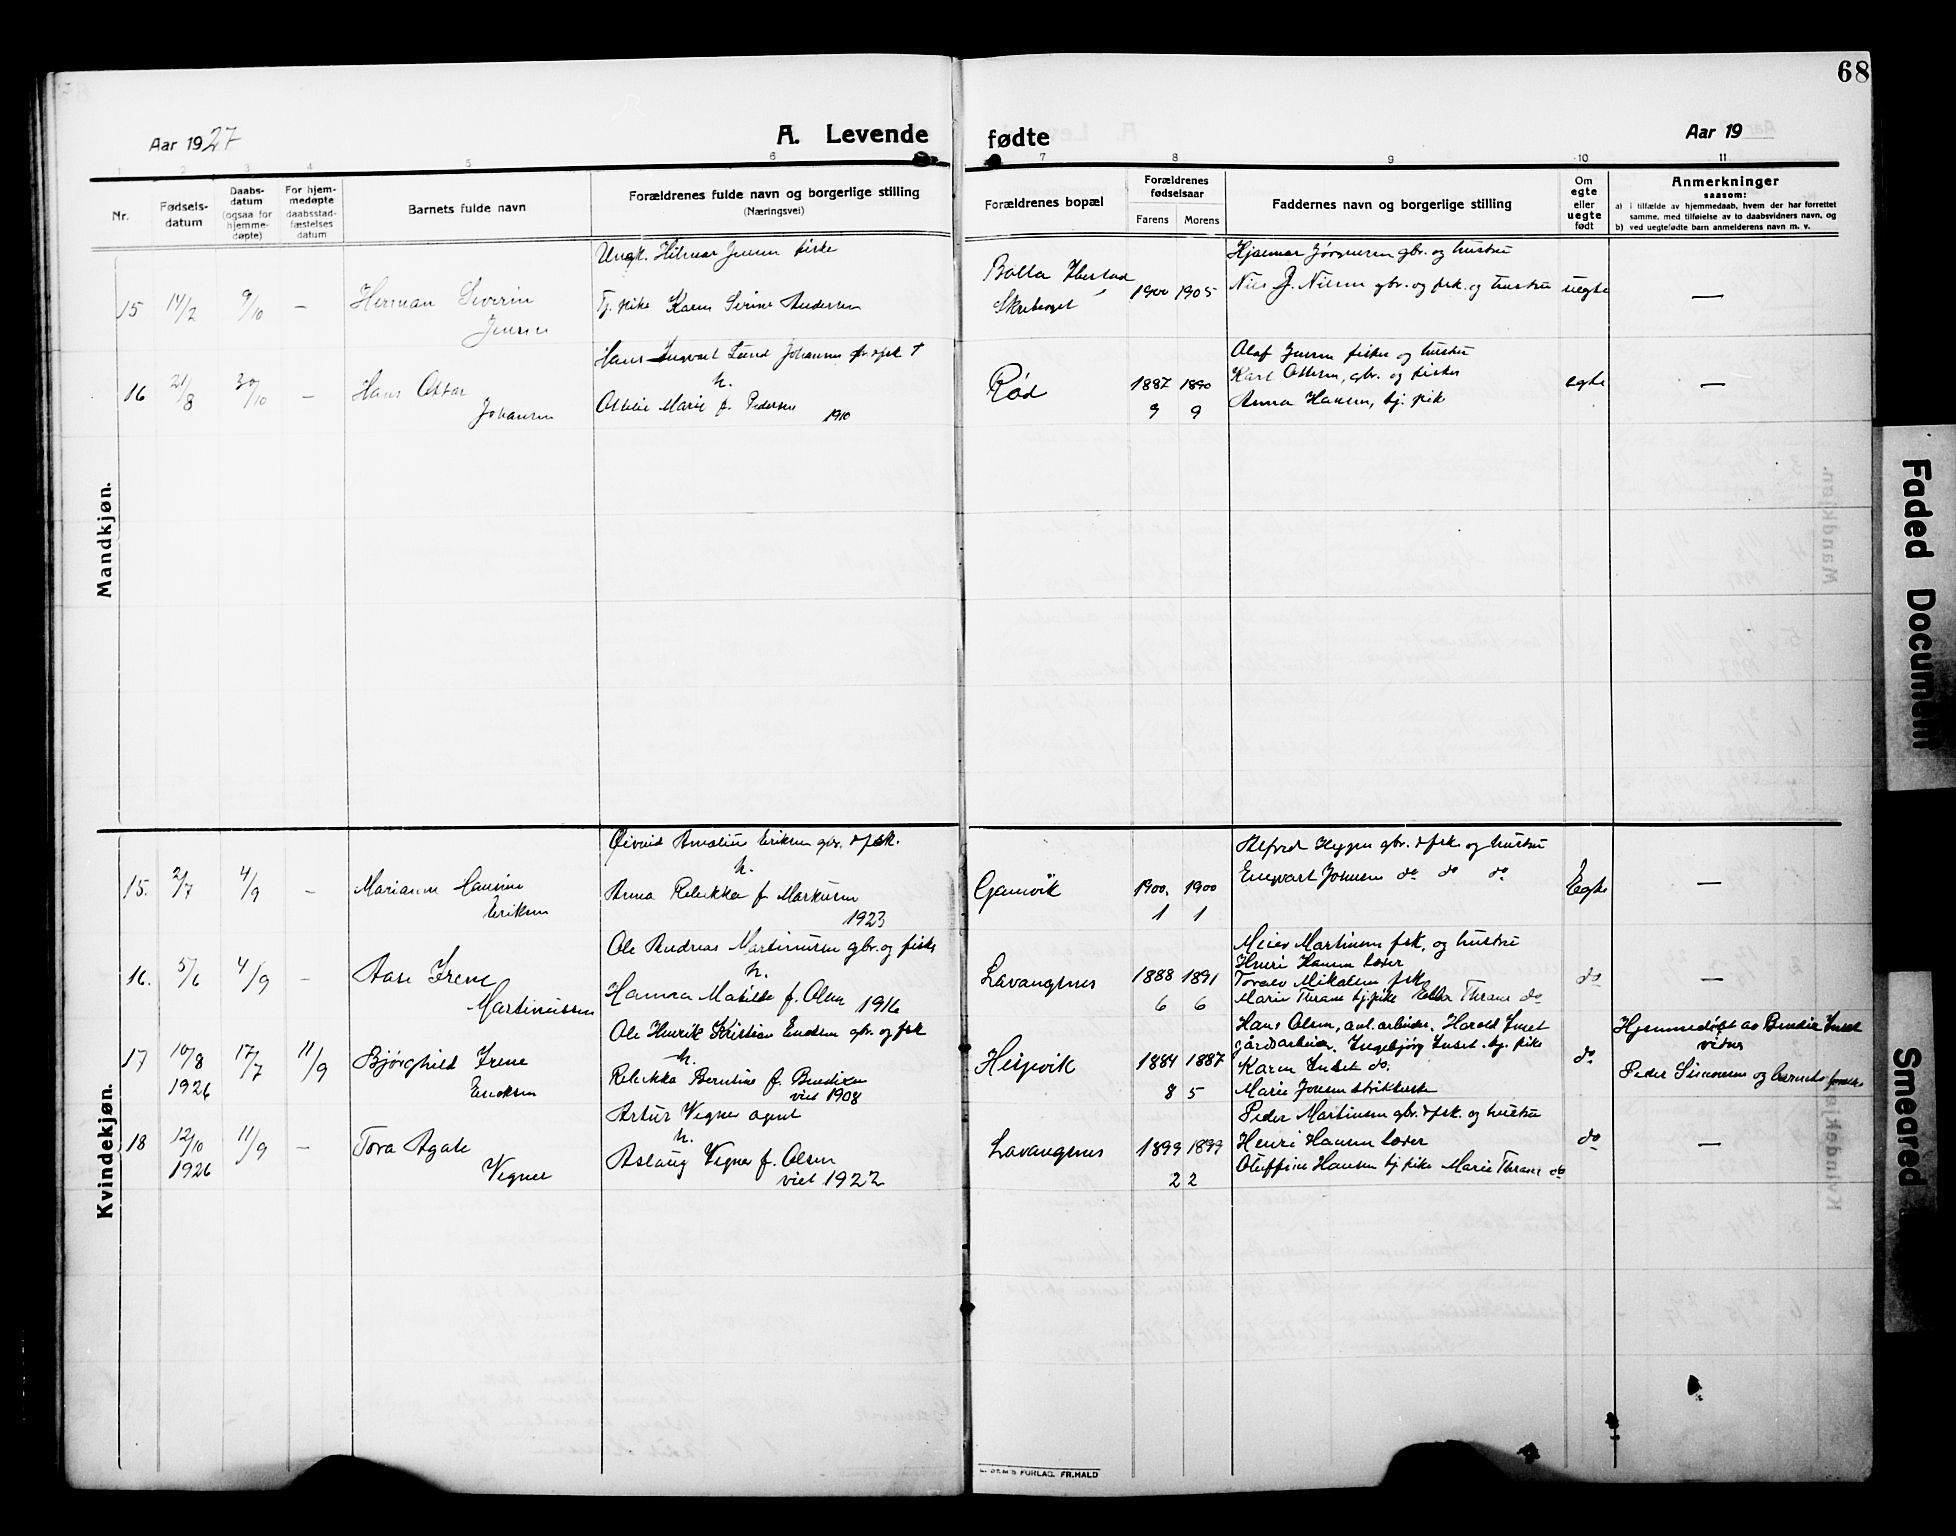 68
Aar 1927
A. Levende fødte
Aar 19
1 2 3 4 5 6 7 8 9 10 11
Nr.
Fødsels-
datum
Daabs-
datum
(ogsaa for
hjemme-
døpte)
For hjem-
medøpte
daabsstad-
fæstelses
datum
Barnets fulde navn
Forældrenes fulde navn og borgerlige stilling
(Næringsvei)
Forældrenes bopæl
Forældrenes
fødselsaar
Farens Morens
Faddernes navn og borgerlige stilling
Om
egte
eller
uegte
født
Anmerkninger
saasom:
a) i tilfælde av hjemmedaab, hvem der har forrettet
samme, med tilføielse av to daabsvidners navn, og
b) ved uegtefødte barn anmelderens navn m. v.
Mandkjøn.
15 14/2 9/10 —
Herman Severin
Jensen
Ungk. Hilmar Jensen fiske
Tj. pike Karen Serine Andersen
Bolla Ibestad
Skrobaget
1900 1905
Hjalmar Jørgensen gbr. og hustru
Nils J. Nilsen gbr. og fsk. og hustru
uegte
—
16 21/8 30/10 —
Hans Ottar
Johansen
Hans Ingvart Lund Johansen fsk †
h.
Ottelie Marie f. Pedersen
1910
Rød
1887 1890
9 9
Olaf Jensen fisker og hustru
Karl Ottesen, gbr. og fisker
Anna Hansen, tj. pik
egte
—
Kvindekjøn.
15. 2/7 4/9 —
Mariann
Eriksen
Øivind Eriksen gbr. & fsk.
h.
Anna Rebekka f. Markusen
1923
Gamvik
1900. 1900
1 1
Alfred Heggen gbr. & fsk og hustru
Engvart Johnsen do do do
Egte
—
16. 5/6 4/9 —
Aase Irene
Martinussen
Ole Andreas Martinussen gbr. og fisker
h.
Hanna Matilde f. Olsen 1916
Lavangsnes
1888 1891
6 6
Meier Martinsen fsk. og hustru
Henri Hansen
Toralv Mikalsen fsk
Marie Thrane tj. pike Ella Thrane do
do
—
17 10/8 17/7 11/9
1926
Bjørghild Irene
Ole Henrik Kristian gbr. og fsk
h.
Rebekka Berntine f. Bendiksen
viet 1908
Hesjevik
1884 1887
8 5
Hans Olsen, anl. arbeider. Harald Inset
gårdsarbeider. Ingebjørg Inset. tj. pike
Karen Inset do.
Marie Jensen
do
Hjemmedøpt av Inset
vidner
Peder Simonsen og barnets
18 12/10 11/9 —
1926
Tora Agate
Vegner
Artur Vegner agent
h.
Aslaug Vegner f. Olsen
viet 1922
Lavangsnes
1899 1899
2 2
Peder Martinsen gbr. & fsk. og hustru
Henri Hansen
Oluffine Hansen tj. pike Marie Thrane do
do
—
FORLAG. FR.HALD
Faded Document
Smeared